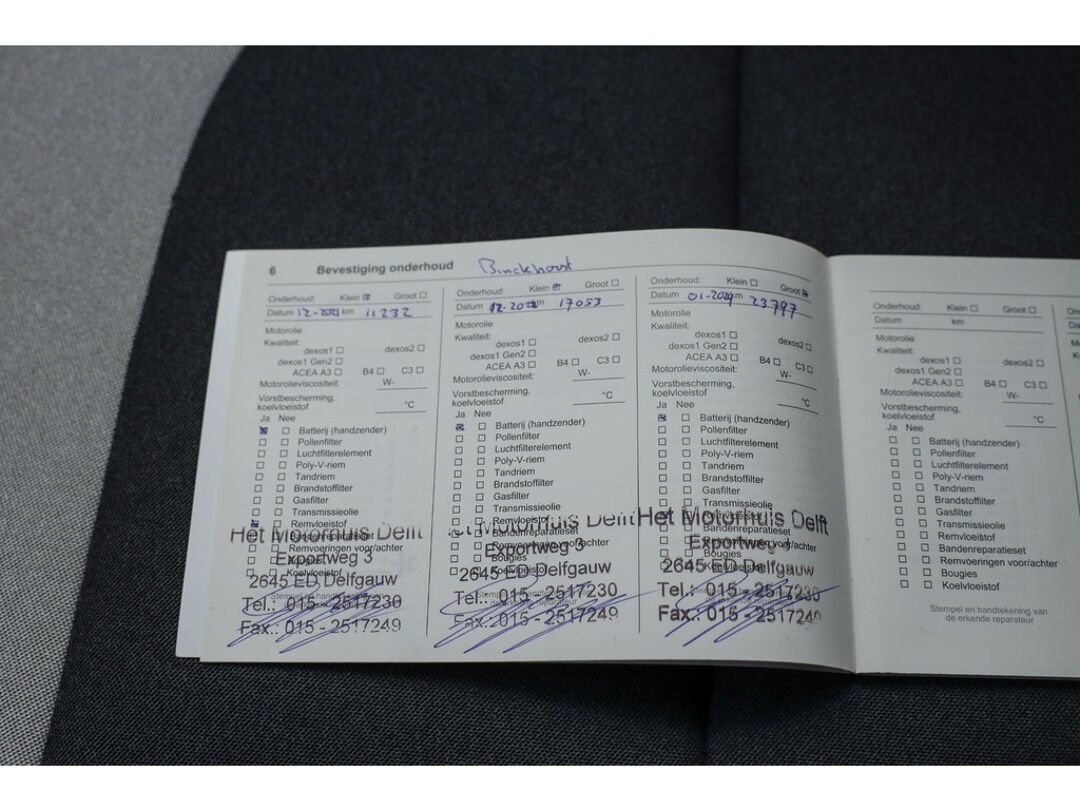 6 Bevestiging onderhoud Binckhorst
Onderhoud: Klein Groot
Datum 12-2021 km 11232
Motorolie
Kwaliteit:
dexos1 dexos2
dexos1 Gen2
ACEA A3 B4 C3
Motorolieviscositeit: W-
Vorstbescherming,
koelvloeistof °C
Ja Nee
Batterij (handzender)
Pollenfilter
Luchtfilterelement
Poly-V-riem
Tandriem
Brandstoffilter
Gasfilter
Transmissieolie
Remvloeistof
Bandenreparatieset
Remvoeringen voor/achter
Koelvloeistof
Het Motorhuis Delft
Exportweg 3
2645 ED Delfgauw
Tel.: 015 - 2517230
Fax.: 015 - 2517249
Onderhoud: Klein Groot
Datum 12-202 km 17053
Motorolie
Kwaliteit:
dexos1 dexos2
dexos1 Gen2
ACEA A3 B4 C3
Motorolieviscositeit: W-
Vorstbescherming,
koelvloeistof °C
Ja Nee
Batterij (handzender)
Pollenfilter
Luchtfilterelement
Poly-V-riem
Tandriem
Brandstoffilter
Gasfilter
Transmissieolie
Remvloeistof
Bandenreparatieset
Remvoeringen voor/achter
Bougies
Koelvloeistof
Het Motorhuis Delft
Exportweg 3
2645 ED Delfgauw
Tel.: 015 - 2517230
Fax.: 015 - 2517249
Onderhoud: Klein Groot
Datum 01-2024 km 23797
Motorolie
Kwaliteit:
dexos1 dexos2
dexos1 Gen2
ACEA A3 B4 C3
Motorolieviscositeit: W-
Vorstbescherming,
koelvloeistof °C
Ja Nee
Batterij (handzender)
Pollenfilter
Luchtfilterelement
Poly-V-riem
Tandriem
Brandstoffilter
Gasfilter
Transmissieolie
Remvloeistof
Bandenreparatieset
Remvoeringen voor/achter
Bougies
Koelvloeistof
Het Motorhuis Delft
Exportweg 3
2645 ED Delfgauw
Tel.: 015 - 2517230
Fax.: 015 - 2517249
Onderhoud: Klein Groot
Datum km
Motorolie
Kwaliteit:
dexos1 dexos2
dexos1 Gen2
ACEA A3 B4 C3
Motorolieviscositeit: W-
Vorstbescherming,
koelvloeistof °C
Ja Nee
Batterij (handzender)
Pollenfilter
Luchtfilterelement
Poly-V-riem
Tandriem
Brandstoffilter
Gasfilter
Transmissieolie
Remvloeistof
Bandenreparatieset
Remvoeringen voor/achter
Bougies
Koelvloeistof
Stempel en handtekening van
de erkende reparateur